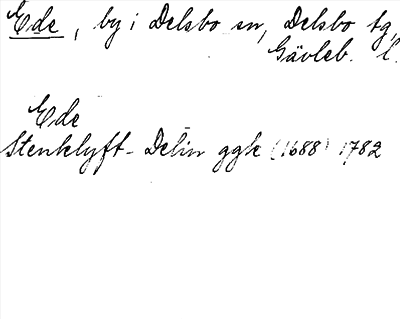 Ede, by i Delsbo sn, Delsbo tg,
Gävleb. l.
Ede
Stenklyft- Delin ggk (1688) 1782